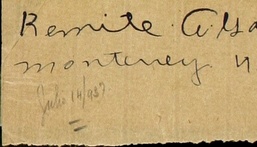 Remite. A. Ga
Monterrey. N
Julio 14/937.